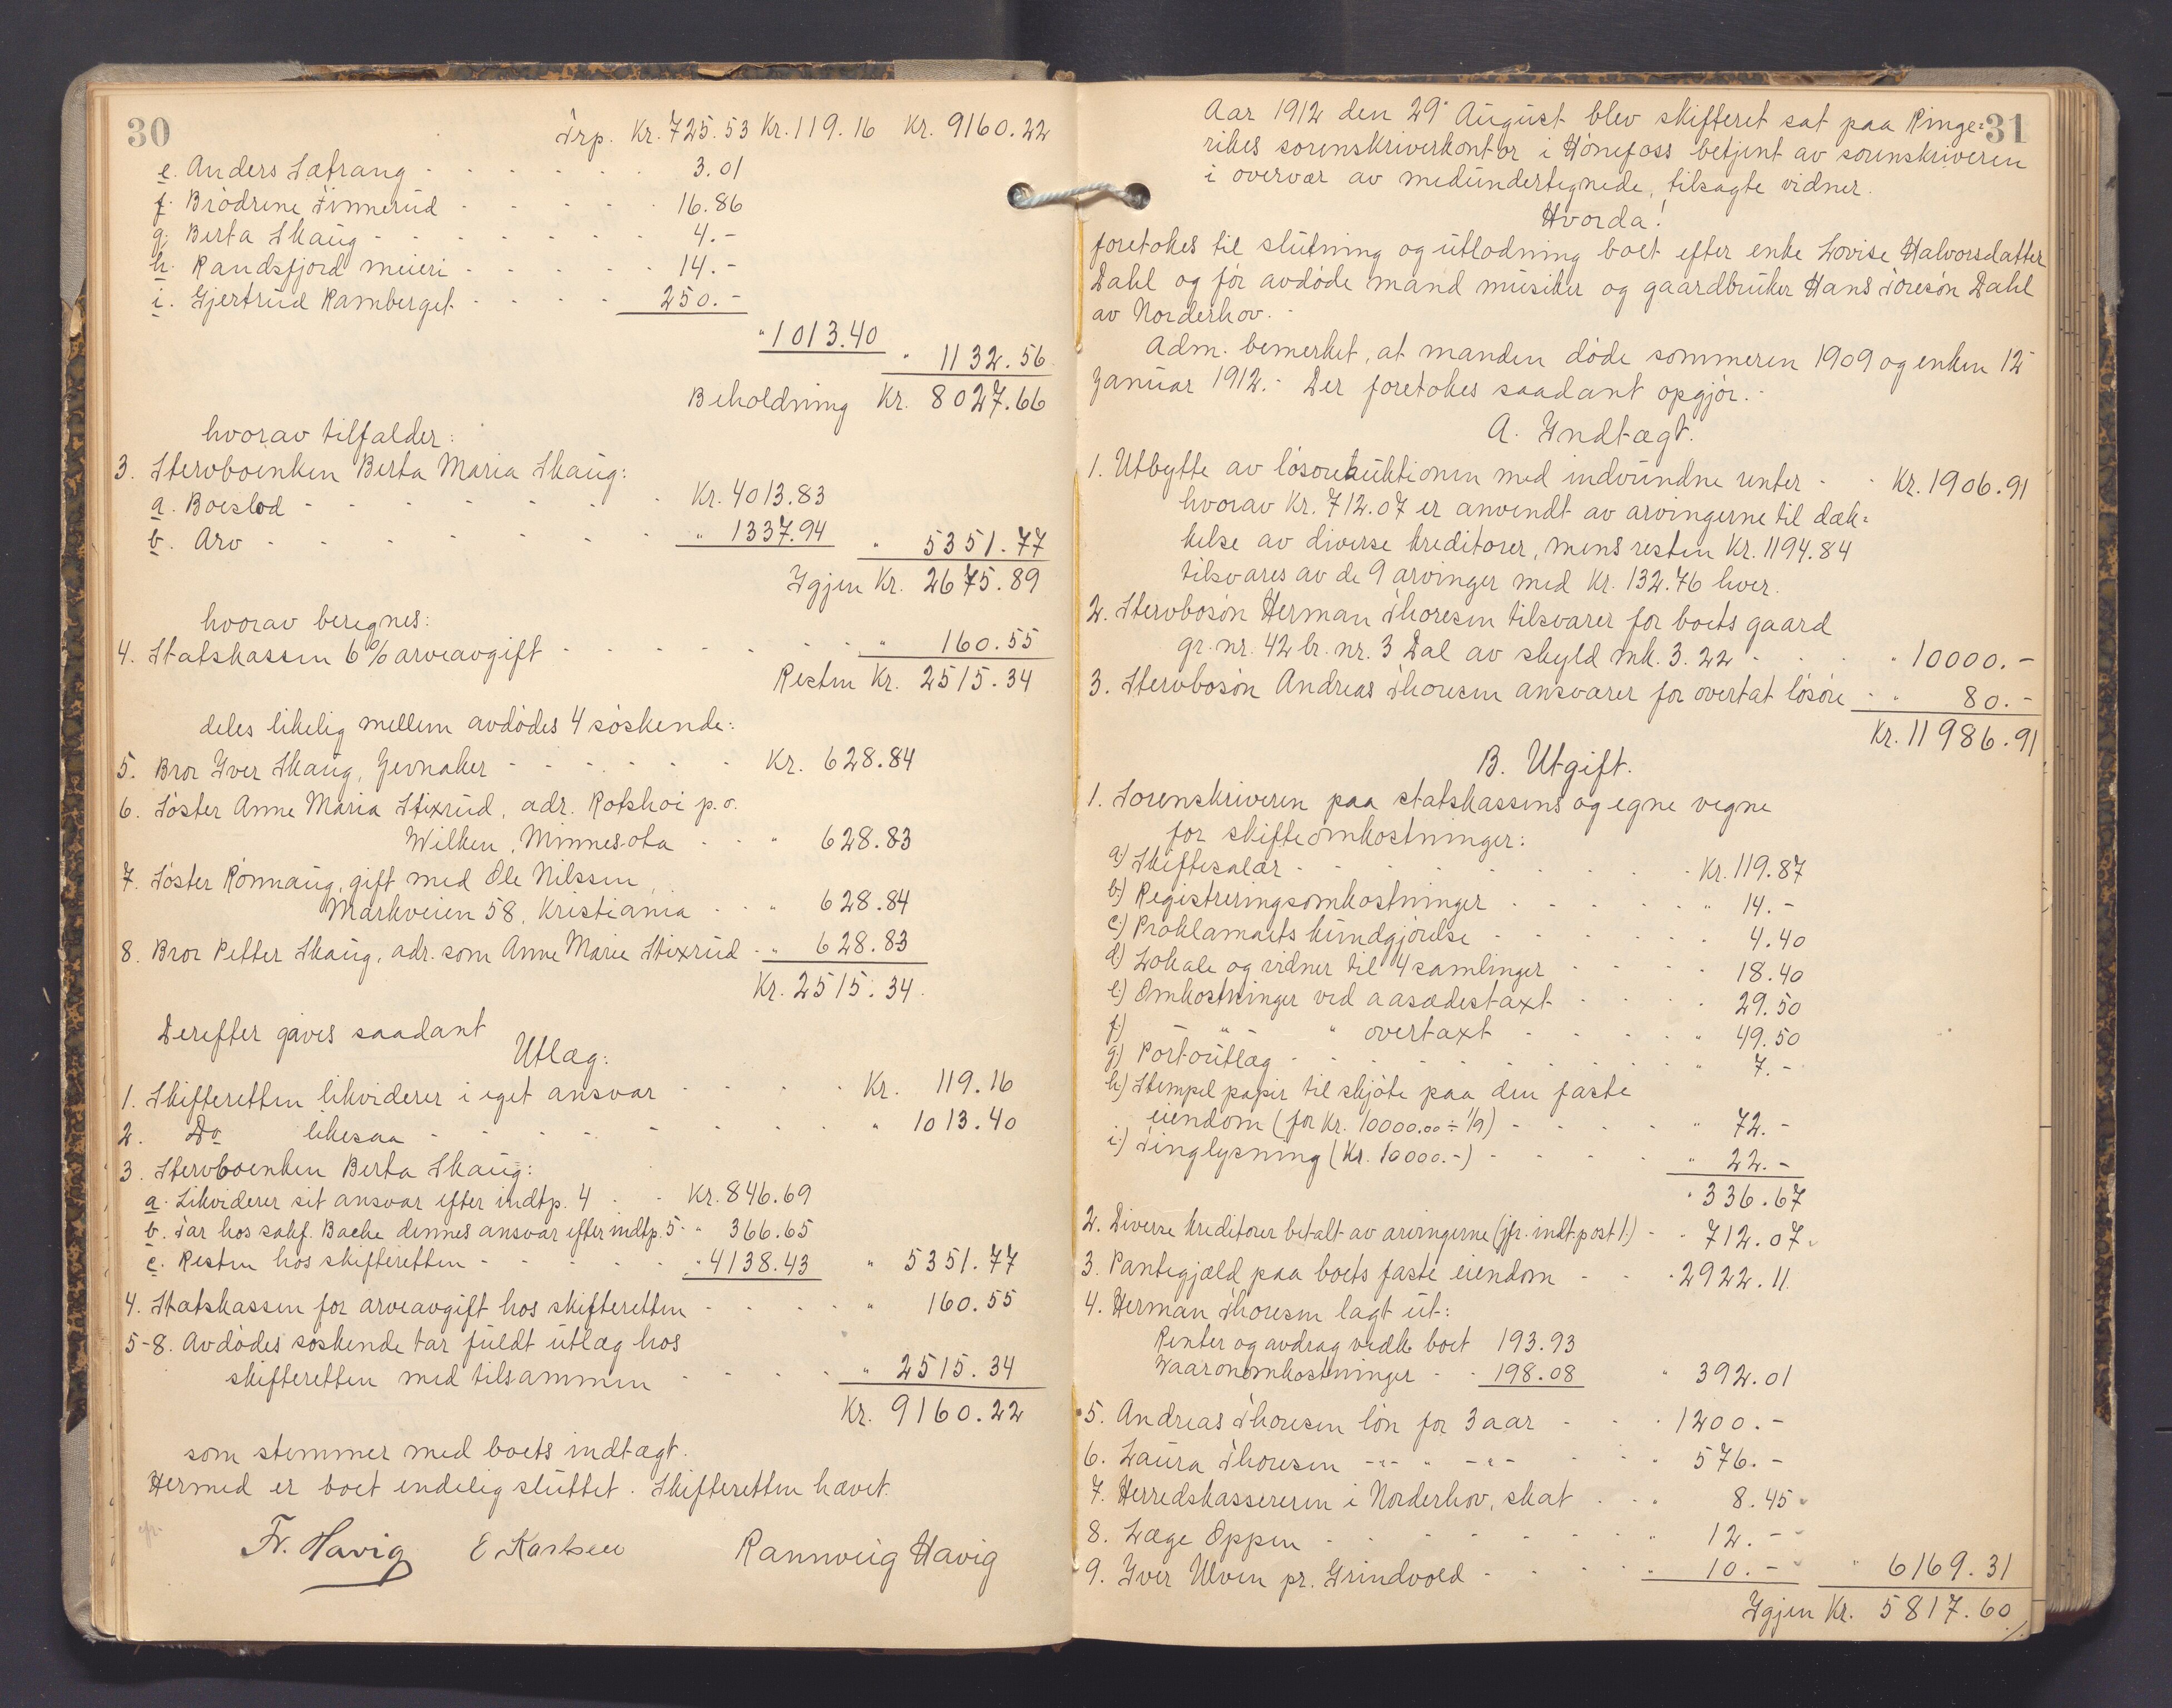 30
Trp. Kr. 725.53 Kr. 119.16 Kr. 9160.22
e. Anders Lætrang - - - - - 3.01
f. Brödrene Finnerud - - - - - 16.86
g. Berta Skaug - - - - - 4.-
h. Randsfjord meieri - - - - - 14.-
i. Gjertrud Ramberget - - - - 250.-
" 1013.40
" 1132.56
Beholdning Kr. 8027.66
hvorav tilfalder:
3. Stervboenken Berta Maria Skaug:
a. Boeslod - - - - - - Kr. 4013.83
b. Arv - - - - - - " 1337.94 " 5351.77
Igjen Kr. 2675.89
hvorav beregnes:
4. Statskassen 6% arveavgift - - - - - " 160.55
Resten Kr. 2515.34
deles likelig mellem avdødes 4 søskende:
5. Bror Iver Skaug, Jevnaker - - - - - Kr. 628.84
6. Søster Anne Maria Stixrud, adr. Rotskoi p.o.
Wilken, Minnesota - - " 628.83
7. Søster Rønnaug, gift med Ole Nilssen,
Markveien 58, Kristiania - - " 628.84
8. Bror Petter Skaug, adr. som Anne Marie Stixrud - " 628.83
Kr. 2515.34.
Derefter gaves saadant
Utlæg:
1. Skifteretten likviderer i eget ansvar - - - - Kr. 119.16
2. Do likesaa - - - - - - - " 1013.40
3. Stervboenken Berta Skaug:
a. Likviderer sit ansvar efter indtp. 4 - - Kr. 846.69
b. Tar hos sakf. Bache dennes ansvar efter indtp. 5 - " 366.65
c. Resten hos skifteretten - - - - - " 4138.43 " 5351.77
4. Statskassen for arveavgift hos skifteretten - - - - " 160.55
5-8. Avdødes søskende tar fuldt utlæg hos
skifteretten med tilsammen - - - - " 2515.34
Kr. 9160.22
som stemmer med boets indtægt.
Hermed er boet endelig sluttet. Skifteretten hævet.
Fr. Havig E Karlsen Rannveig Havig
31
Aar 1912 den 29. August blev skifteret sat paa Ringe=
rikes sorenskriverkontor i Hönefoss betjent av sorenskriveren
i overvær av medundertegnede, tilsagte vidner.
Hvorda!
foretokes til slutning og utlodning boet efter enke Lovise Halvorsdatter
Dahl og før avdøde mand musiker og gaardbruker Hans Toresøn Dahl
av Norderhov. -
Adm. bemerket, at manden døde sommeren 1909 og enken 12
Januar 1912. - Der foretokes saadant opgjør. -
A. Indtægt.
1. Utbytte av løsøreauktionen med indvundne renter - - Kr. 1906.91
hvorav Kr. 712.07 er anvendt av arvingerne til dæk=
kelse av diverse kreditorer, mens resten Kr. 1194.84
tilsvares av de 9 arvinger med Kr. 132.76 hver.
2. Stervbosøn Herman Thoresen tilsvarer for boets gaard
gr. nr. 42 br. nr. 3 Dal av skyld mk. 3.22 - - - " 10000.-
3. Stervbosøn Andreas Thoresen ansvarer for overtat løsøre - " 80.-
Kr. 11986.91
B. Utgift.
1. Sorenskriveren paa statskassens og egne vegne
for skifteomkostninger:
a) Skiftesalær - - - - - - - Kr. 119.87
b) Registreringsomkostninger - - - - - " 14.-
c) Proklamaets kundgjørelse - - - - - - 4.40
d) Lokale og vidner til 4 samlinger - - - - 18.40
e) Omkostninger ved aasædestaxt - - - - 29.50
f) - " - " overtaxt - - - - " 49.50
g) Portoutlæg - - - - - - - " 7.-
h) Stempel papir til skjøte paa den faste
eiendom (for Kr. 10000.00 ÷ 1/9) - - - - " 72.-
i) Tinglysning (Kr. 10000.-) - - - - " 22.-
" 336.67
2. Diverse kreditorer betalt av arvingerne (jfr. indt. post 1.) - - 712.07
3. Pantegjæld paa boets faste eiendom - - - 2922.11
4. Herman Thoresen lagt ut:
Renter og avdrag vedk. boet 193.93
Vaaronnomkostninger - - 198.08 " 392.01
5. Andreas Thoresen løn for 3 aar - - - 1200.-
6. Laura Thoresen -"- " -"- - - " 576.-
7. Herredskassereren i Norderhov, skat - - - 8.45
8. Læge Oppen - - - - - - " 12.-
9. Iver Ulven pr. Grindvold - - - - " 10.- " 6169.31
Igjen Kr. 5817.60